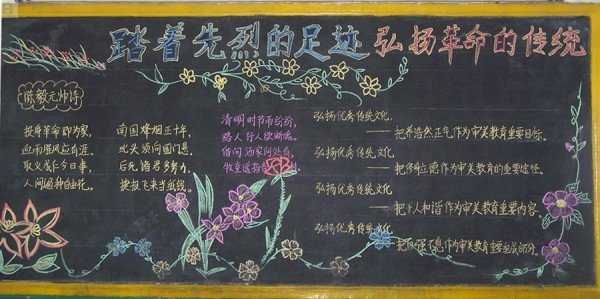 踏着先烈的足迹 弘扬革命的传统
陈毅元帅诗
投身革命即为家,
血雨腥风应有涯。
取义成仁今日事,
人间遍种自由花。
南国烽烟正十年,
此头须向国门悬。
后死诸君多努力,
捷报飞来当纸钱。
清明时节雨纷纷,
路上行人欲断魂。
借问酒家何处有,
牧童遥指
弘扬优秀传统文化,
——把养浩然正气作为审美教育重要目标。
弘扬优秀传统文化,
——把修身立德作为审美教育的重要途径。
弘扬优秀传统文化,
——把个人和谐作为审美教育重要内容。
弘扬优秀传统文化,
——把自强不息作为审美教育重要组成部分。